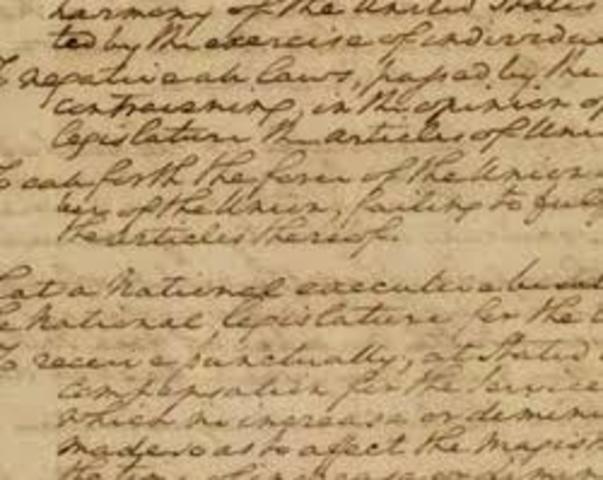 harmony of the United States
ted by the exercise of individua
To negative all laws, passed by the
contravening, in the opinion of
legislature the articles of Uni
To call forth the force of the Union
ber of the Union, failing to ful
the articles thereof.
hat a National executive be
e National legislature for the
To receive punctually, at stated
compensation for the service
which no increase or diminu
made so as to affect the Magist
the time of increase or dimin